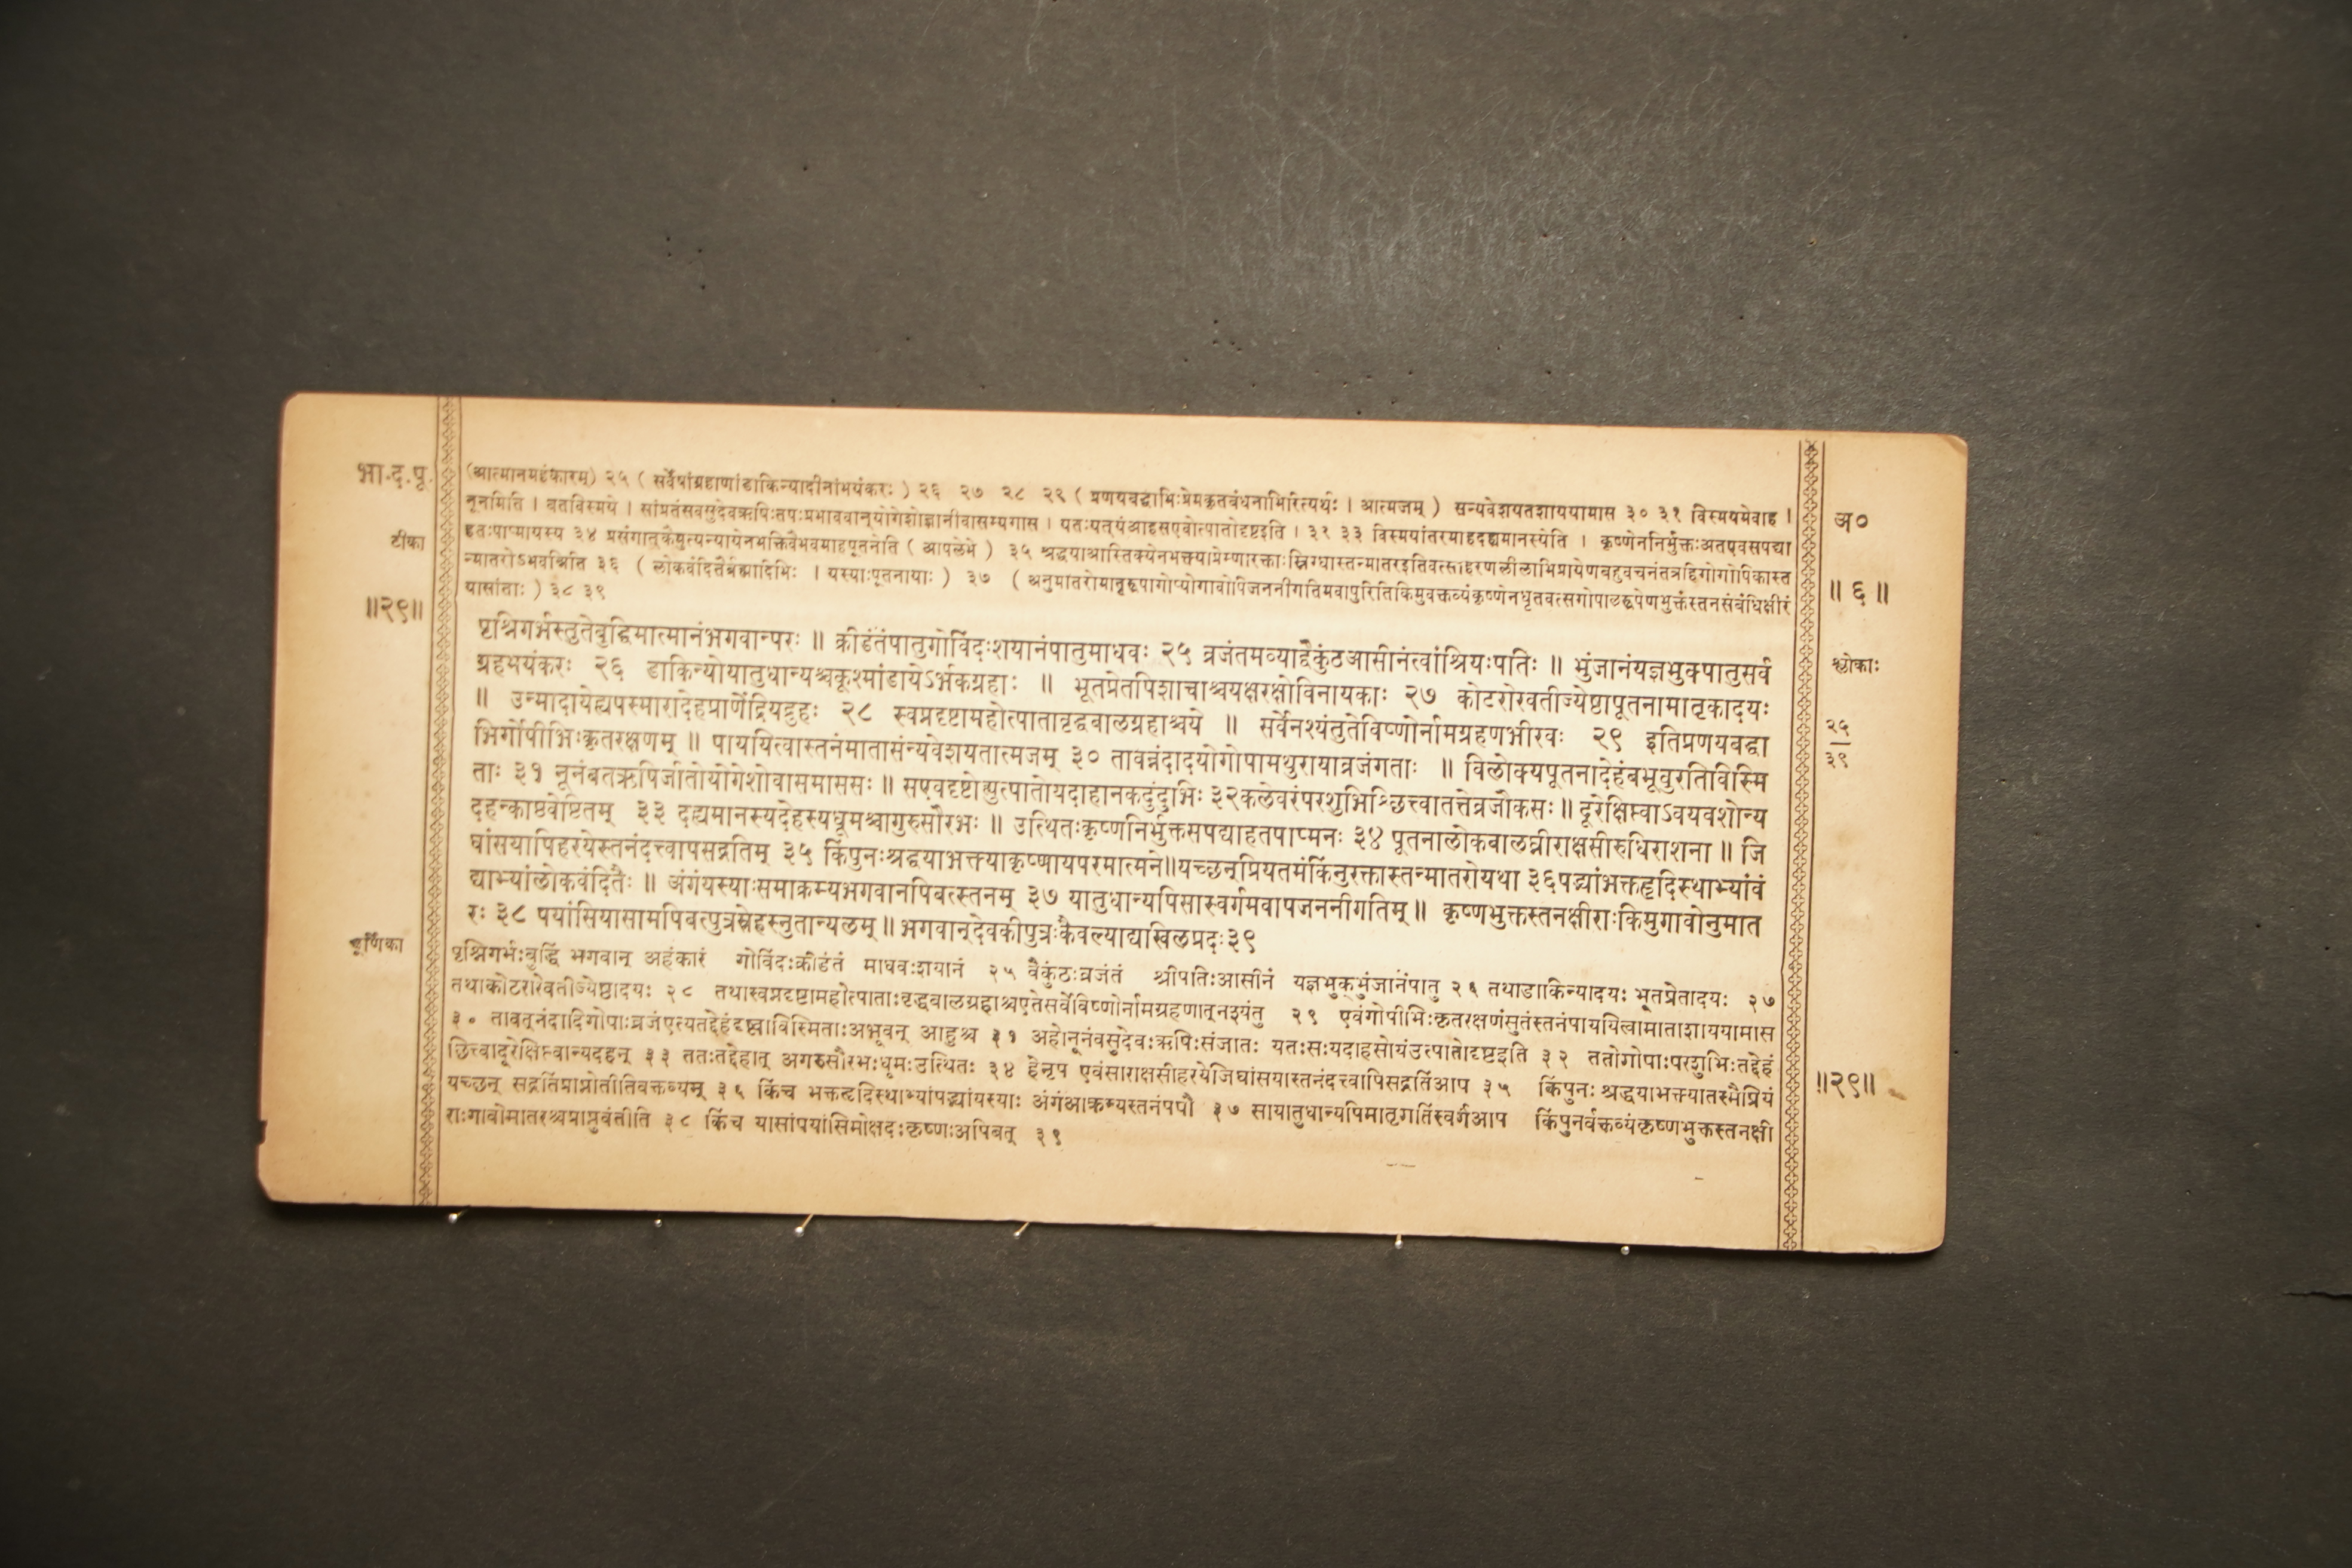 भा.द.पू.
टीका
॥२९॥
(आत्मानमहंकारम्) २५ ( सर्वेषांग्रहाणांडाकिन्यादीनांभयंकरः ) २६ २७ २८ २९ ( प्रणयबद्धाभिःप्रेमकृतबंधनाभिरित्यर्थः । आत्मजम् ) सन्यवेशयतशाययामास ३० ३१ विस्मयमेवाह ।
नूनमिति । बतविस्मये । सांप्रतंसवसुदेवऋषिःतपःप्रभाववान्योगेशोज्ञानीवासम्यगास । यतःयत्यंआहसएवोत्पातोदृष्टइति । ३२ ३३ विस्मयांतरमाहदह्यमानस्येति । कृष्णेननिर्भुक्तःअतएवसपद्या
हतःपाप्मायस्य ३४ प्रसंगात्कैमुत्यन्यायेनभक्तिवैभवमाहपूतनेति ( आपलेभे ) ३५ श्रद्धयाआस्तिक्येनभक्त्याप्रेम्णारक्ताःस्निग्धास्तन्मातरइतिवत्साहरणलीलाभिप्रायेणबहुवचनंतत्रहिगोगोपिकास्त
न्मातरोऽभवन्निति ३६ ( लोकवंदितैर्ब्रह्मादिभिः । यस्याःपूतनायाः ) ३७ ( अनुमातरोमातृरूपागोप्योगावोपिजननीगतिमवापुरितिकिमुवक्तव्यंकृष्णेनधृतवत्सगोपालरूपेणभुक्तंस्तनसंबंधिक्षीरं
यासांताः ) ३८ ३९
पृश्निगर्भस्तुतेबुद्धिमात्मानंभगवान्परः ॥ क्रीडंतंपातुगोविंदःशयानंपातुमाधवः २५ व्रजंतमव्याद्वैकुंठआसीनंत्वांश्रियःपतिः ॥ भुंजानंयज्ञभुक्पातुसर्व
ग्रहभयंकरः २६ डाकिन्योयातुधान्यश्चकूश्मांडायेऽर्भकग्रहाः ॥ भूतप्रेतपिशाचाश्चयक्षरक्षोविनायकाः २७ कोटरारेवतीज्येष्ठापूतनामातृकादयः
॥ उन्मादायेह्यपस्मारादेहप्राणेंद्रियद्रुहः २८ स्वप्नदृष्टामहोत्पातावृद्धबालग्रहाश्चये ॥ सर्वेनश्यंतुतेविष्णोर्नामग्रहणभीरवः २९ इतिप्रणयबद्धा
भिर्गोपीभिःकृतरक्षणम् ॥ पाययित्वास्तनंमातासंन्यवेशयतात्मजम् ३० तावन्नंदादयोगोपामथुरायाव्रजंगताः ॥ विलोक्यपूतनादेहंबभूवुरतिविस्मि
ताः ३१ नूनंबतऋषिर्जातोयोगेशोवासमाससः ॥ सएवदृष्टोह्युत्पातोयदाहानकदुंदुभिः ३२कलेवरंपरशुभिश्छित्त्वातत्तेव्रजौकसः॥ दूरेक्षिप्त्वाऽवयवशोन्य
दहन्काष्ठवेष्टितम् ३३ दह्यमानस्यदेहस्यधूमश्चागुरुसौरभः ॥ उत्थितःकृष्णनिर्भुक्तसपद्याहतपाप्मनः ३४ पूतनालोकबालघ्नीराक्षसीरुधिराशना ॥ जि
घांसयापिहरयेस्तनंदत्त्वापसद्गतिम् ३५ किंपुनःश्रद्धयाभक्त्याकृष्णायपरमात्मने॥यच्छन्प्रियतमंकिंनुरक्तास्तन्मातरोयथा ३६पद्भ्यांभक्तहृदिस्थाभ्यांवं
द्याभ्यांलोकवंदितैः ॥ अंगंयस्याःसमाक्रम्यभगवानपिबत्स्तनम् ३७ यातुधान्यपिसास्वर्गमवापजननीगतिम् ॥ कृष्णभुक्तस्तनक्षीराःकिमुगावोनुमात
रः ३८ पयांसियासामपिबत्पुत्रस्नेहस्नुतान्यलम् ॥ भगवान्देवकीपुत्रःकैवल्याद्यखिलप्रदः३९
चूर्णिका
पृश्निगर्भःबुद्धिं भगवान् अहंकारं गोविंदःक्रीडंतं माधवःशयानं २५ वैकुंठःव्रजंतं श्रीपतिःआसीनं यज्ञभुक्भुंजानंपातु २६ तथाडाकिन्यादयः भूतप्रेतादयः २७
तथाकोटरारेवतीज्येष्ठादयः २८ तथास्वप्नदृष्टामहोत्पाताःवृद्धबालग्रहाश्चएतेसर्वेविष्णोर्नामग्रहणात्नश्यंतु २९ एवंगोपीभिःकृतरक्षणंसुतंस्तनंपाययित्वामाताशाययामास
३० तावत्नंदादिगोपाःव्रजंएत्यतद्देहंदृष्ट्वाविस्मिताःअभूवन् आहुश्च ३१ अहोनूनंवसुदेवःऋषिःसंजातः यतःसःयदाहसोयंउत्पातोदृष्टइति ३२ ततोगोपाःपरशुभिःतद्देहं
छित्त्वादूरेक्षिप्त्वान्यदहन् ३३ ततःतद्देहात् अगरुसौरभःधूमःउत्थितः ३४ हेनृप एवंसाराक्षसीहरयेजिघांसयास्तनंदत्त्वापिसद्गतिंआप ३५ किंपुनः श्रद्धयाभक्त्यातस्मैप्रियं
यच्छन् सद्गतिंप्राप्नोतीतिवक्तव्यम् ३६ किंच भक्तहृदिस्थाभ्यांपद्भ्यांयस्याः अंगंआक्रम्यस्तनंपपौ ३७ सायातुधान्यपिमातृगतिंस्वर्गंआप किंपुनर्वक्तव्यंकृष्णभुक्तस्तनक्षी
राःगावोमातरश्चप्राप्नुवंतीति ३८ किंच यासांपयांसिमोक्षदःकृष्णःअपिबत् ३९
अ०
॥ ६ ॥
श्लोकाः
२५
३९
॥२९॥